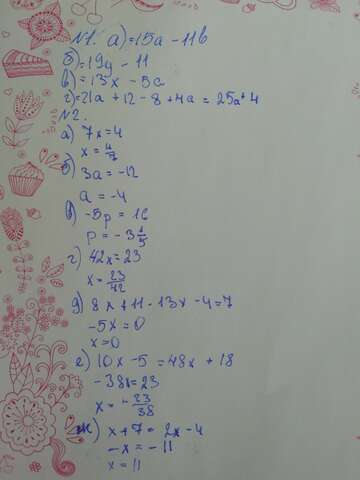 №1. а) = 15a - 11b
б) = 19y - 11
в) = 13x - 5c
г) = 21a + 12 - 8 + 4a = 25a + 4
№2.
а) 7x = 4
x = 4/7
б) 3a = -12
a = -4
в) -5p = 16
p = -3 1/5
г) 42x = 23
x = 23/42
д) 8x + 11 - 13x - 4 = 7
-5x = 0
x = 0
е) 10x - 5 = 48x + 18
-38x = 23
x = -23/38
ж) x + 7 = 2x - 4
-x = -11
x = 11